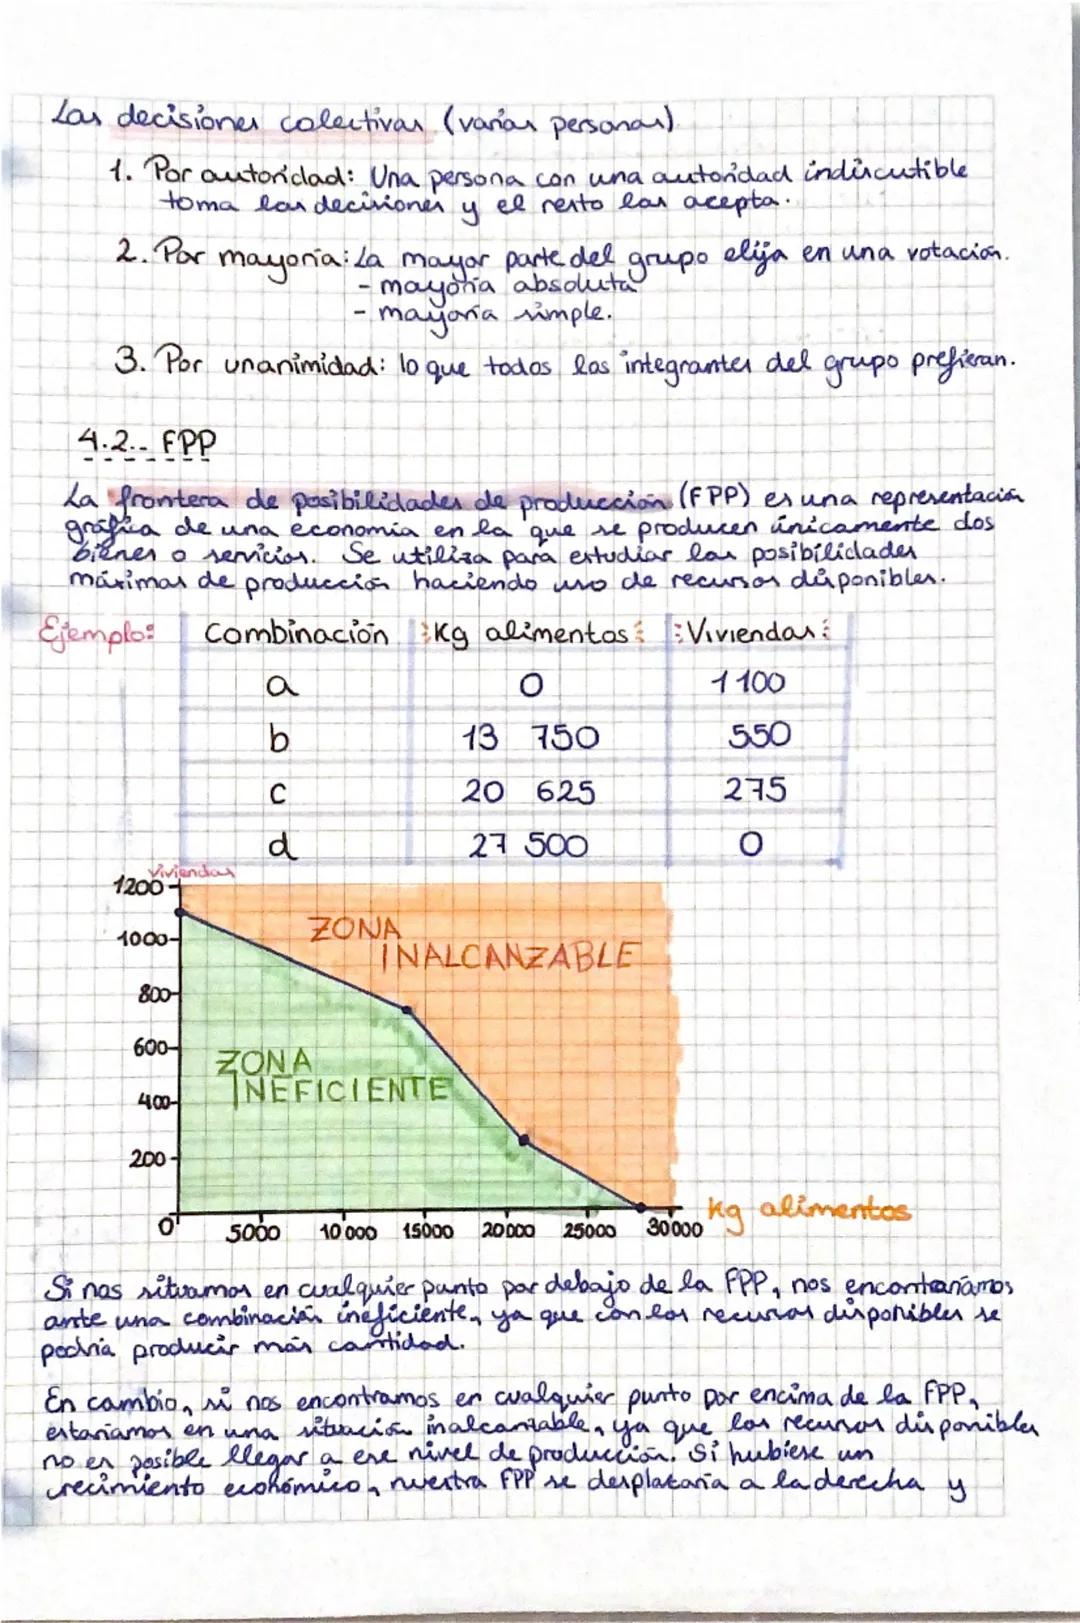 Las decisiones colectivas (varias personas)
1. Por autoridad: Una persona con una autoridad indiscutible
toma las decisiones y el resto las acepta.
2. Por mayoría: La mayor parte del grupo elija en una votación.
- mayoría absoluta
- mayoría simple.
3. Por unanimidad: lo que todos los integrantes del grupo prefieran.
4.2.- FPP
La frontera de posibilidades de producción (FPP) es una representación
gráfica de una economía en la que se producen únicamente dos
bienes o servicios. Se utiliza para estudiar las posibilidades
máximas de producción haciendo uso de recursos disponibles.
Ejemplo: Combinación Kg alimentos Viviendas
a 0 1100
b 13 750 550
c 20 625 275
d 27 500 0
Viviendas
1200
1000
800
600
400
200
0
ZONA
INALCANZABLE
ZONA
INEFICIENTE
5000 10 000 15000 20000 25000 30000 Kg alimentos
Si nos situamos en cualquier punto por debajo de la FPP, nos encontraríamos
ante una combinación ineficiente, ya que con los recursos disponibles se
podría producir más cantidad.
En cambio, si nos encontramos en cualquier punto por encima de la FPP,
estaríamos en una situación inalcanzable, ya que los recursos disponibles
no es posible llegar a ese nivel de producción. Si hubiese un
crecimiento económico, nuestra FPP se desplazaría a la derecha y